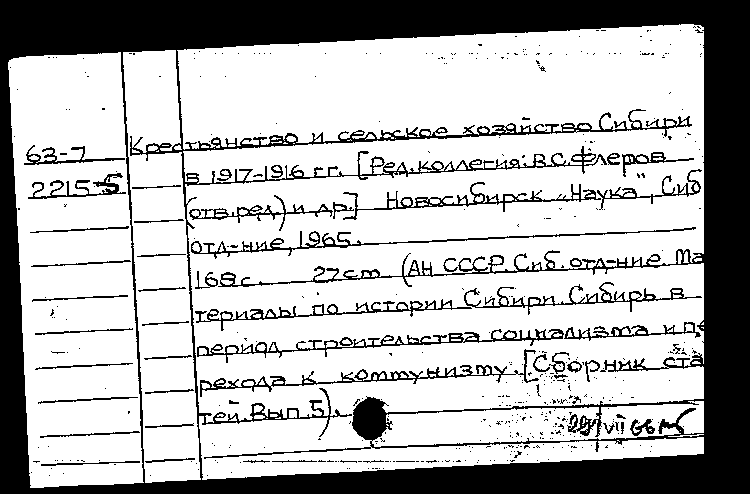 Крестьянство и сельское хозяйство Сибири
63-7
в 1917-1916 гг. [Ред.коллегия: В.С.Флеров
2215-5
(отв.ред.) и др.] Новосибирск „Наука", Сиб
отд-ние, 1965.
168 с. 27 cm (АН СССР. Сиб. отд-ние. Ма
териалы по истории Сибири. Сибирь в
период строительства социализма и пе
рехода к коммунизму. [Сборник ста
тей. Вып. 5).
VII 66